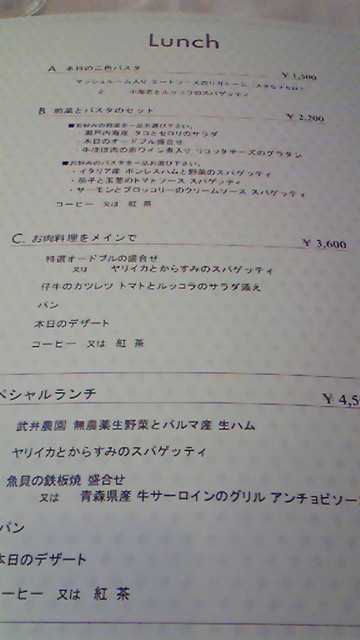 Lunch
A 本日の二色パスタ ¥1,500
マッシュルーム入り ミートソースのリガトーニ
と 小海老とルッコラのスパゲッティ
B 前菜とパスタのセット ¥2,200
■お好みの前菜を一品お選び下さい。
瀬戸内海産 タコとセロリのサラダ
・本日のオードブル盛合せ
牛ほほ肉の赤ワイン煮入り リコッタチーズのグラタン
■お好みのパスタを一品お選び下さい。
・イタリア産 ボンレスハムと野菜のスパゲッティ
・茄子と玉葱のトマトソース スパゲッティ
・サーモンとブロッコリーのクリームソース スパゲッティ
コーヒー 又は 紅茶
C. お肉料理をメインで ¥3,600
特選オードブルの盛合せ
又は ヤリイカとからすみのスパゲッティ
仔牛のカツレツ トマトとルッコラのサラダ添え
パン
本日のデザート
コーヒー 又は 紅茶
ペシャルランチ ¥4,5
武井農園 無農薬生野菜とパルマ産 生ハム
ヤリイカとからすみのスパゲッティ
魚貝の鉄板焼 盛合せ
又は 青森県産 牛サーロインのグリル アンチョビソー
パン
本日のデザート
ーヒー 又は 紅茶